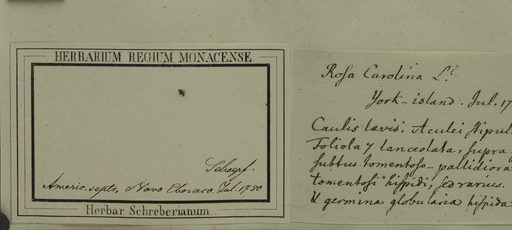 HERBARIUM REGIUM MONACENSE.
Schoepf.
Americ. septr. Novo Eboraco. Jul. 1780
Herbar. Schreberianum.
Rosa Carolina L.
York-island. Jul. 17
Caulis laevis. Aculei stipul
Foliola 7 lanceolata, supra
subtus tomentoso-pallidiora
tomentosi hispidi, sed rarius.
& germina globularia hispida